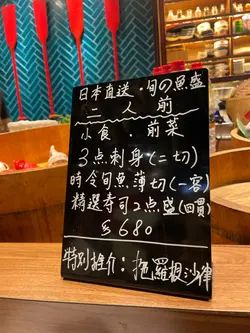 日本直送．旬の魚盛
二人前
小食．前菜
3点刺身(二切)
時令旬魚薄切(一客)
精選寿司2点盛(四貫)
$680
特別推介：拖羅根沙律